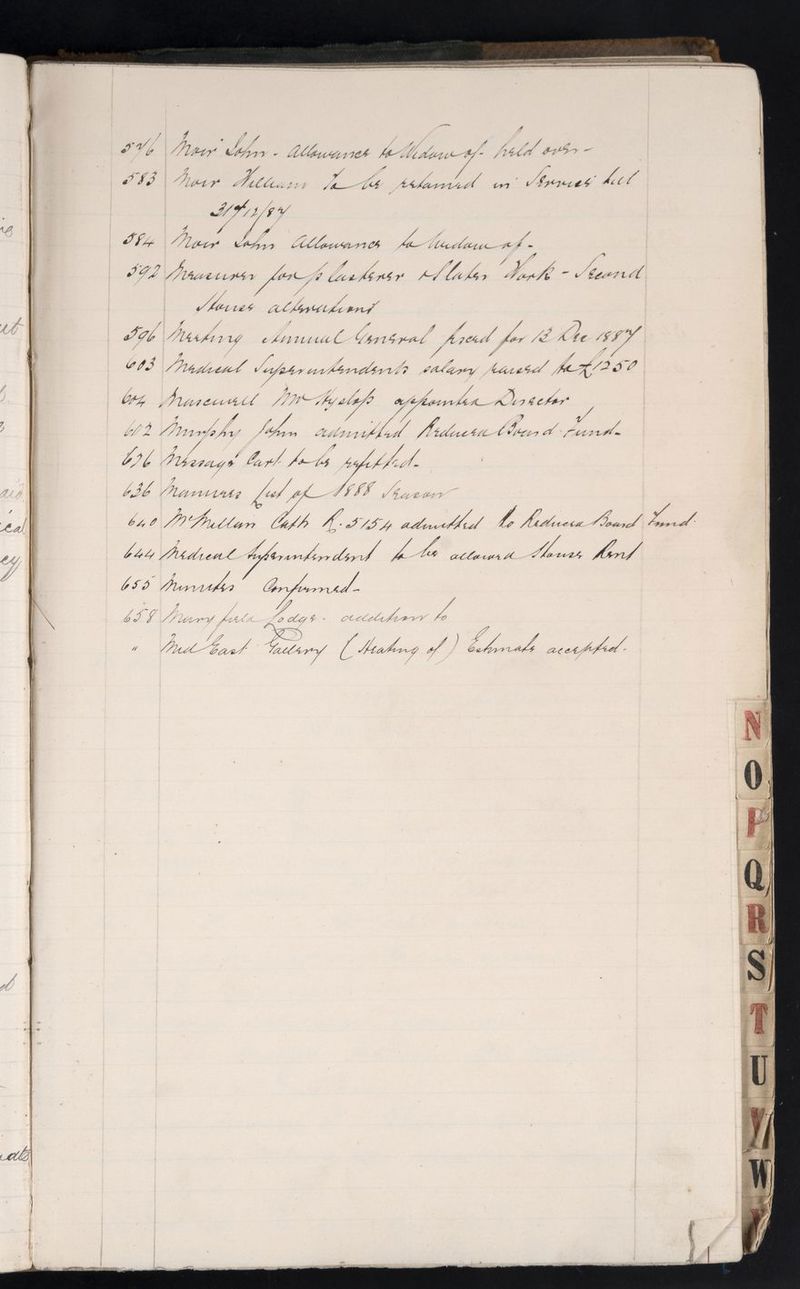 576 Moir John - Allowance to Widow of - held over -
583 Moir William To be retained in Service till
31st/12/87
584 Moir John Allowance to Widow of -
592 Measurer for Plasterer & Slater Work - Second
House alterations
596 Meeting Annual General fixed for 12 Dec 1887
603 Medical Superintendents salary raised to £1250
604 Maxwell Mr Hyslop appointed Director
612 Murphy John admitted Reduced Board Fund -
626 Message Cart to be refitted -
636 Manures list of 1888 Season
640 McMillan Cath R. 5154 admitted to Reduced Board Fund -
644 Medical Superintendent to be allowed House Rent
655 Minutes Confirmed -
658 Maryfield Lodge - addition to
" Mid East Gallery (Heating of) Estimate accepted -
N
O
P
Q
R
S
T
U
V
W